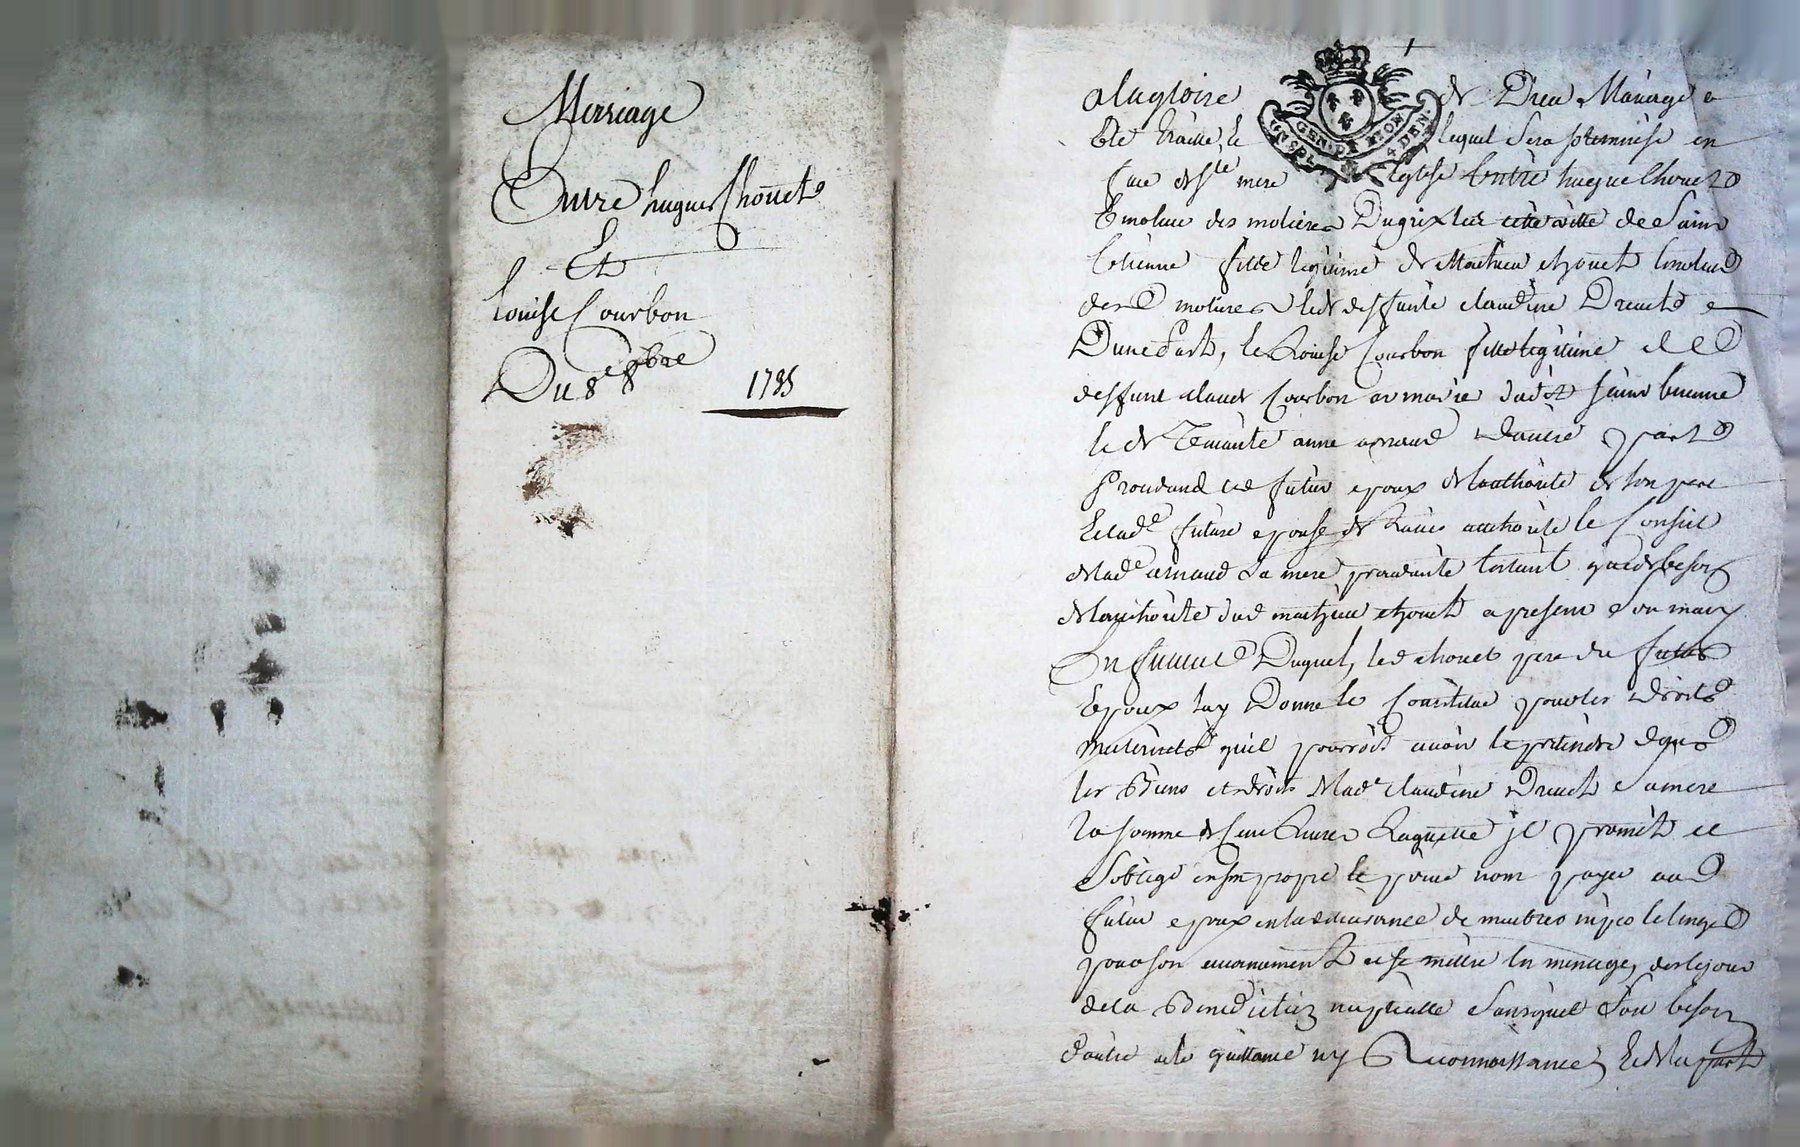 Merriage
Entre hugues Chouet
Et
louise Courbon
Du 8e 8bre 1785
GEN. DE LYON
4 DEN
a la gloire de Dieu Mariage a
Eté traitté le lequel sera solemnisé en
face de ste mere Eglise Entre hugue Chouet
Emoleur des molieres Du cette ville de Saint
Etienne fills legitime de Mathieu chouet Emoleur
desd molieres et de deffunte claudine Dreuet
D'une Part, et Louise Courbon fille legitime de
deffunt claude Courbon audit Saint Etienne
et de vivante anne arnaud D'autre part
procedant led futur epoux de lauthorité de son pere
Et lade future epouse de L'avis authorité et Conseil
de lade arnaud sa mere procedante entant que de besoin
de lauthorité dud mathieu chouet a present son mary
En faveur Duquel, led chouet pere du futur
Epoux luy Donne et Constitue pour les droits
maternels quil pourroit avoir et pretendre
les Biens et droits de lade claudine Dreuet sa mere
la somme de Cent Livres Laquelle il promet et
s'oblige en son propre et privé nom payer aud
futur epoux en la de meubles et linges
pour son et se mettre En menage, des le jour
de la Benediction nuptialle Sans quil soit besoin
d'autre acte quittance ny Reconnoissance, Et de la part